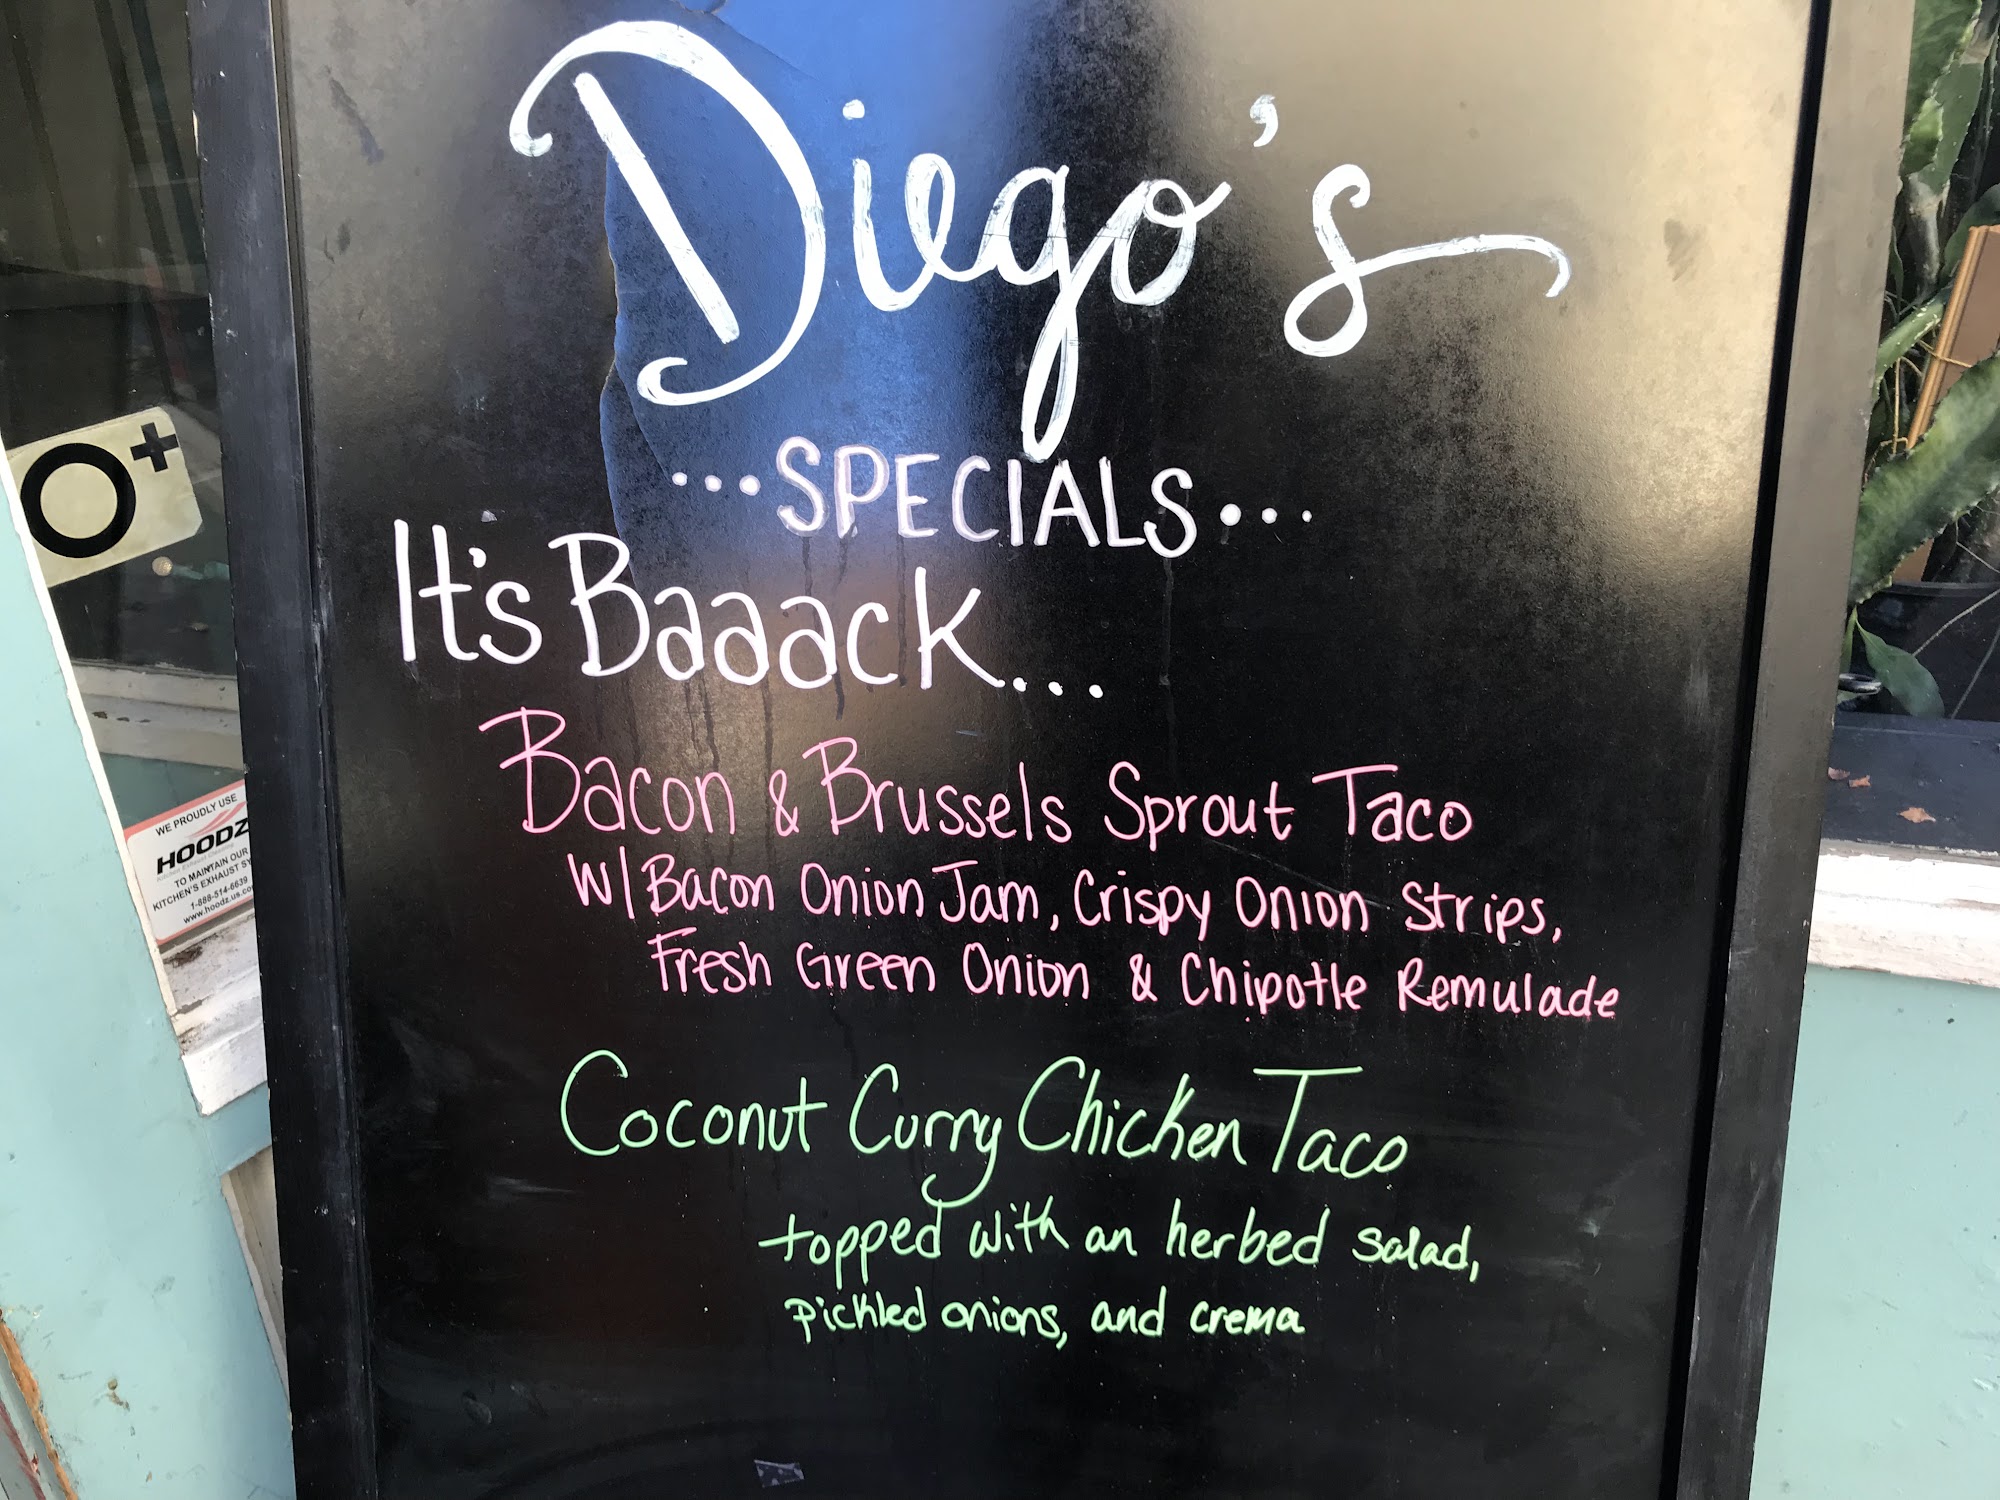 Diego's
...SPECIALS...
It's Baaack...
Bacon & Brussels Sprout Taco
W/Bacon Onion Jam, Crispy Onion Strips,
Fresh Green Onion & Chipotle Remulade
Coconut Curry Chicken Taco
topped with an herbed salad,
pickled onions, and crema
O+
WE PROUDLY USE
HOODZ
TO MAINTAIN OUR
KITCHEN'S EXHAUST SY
1-888-514-6639
www.hoodz.us.co